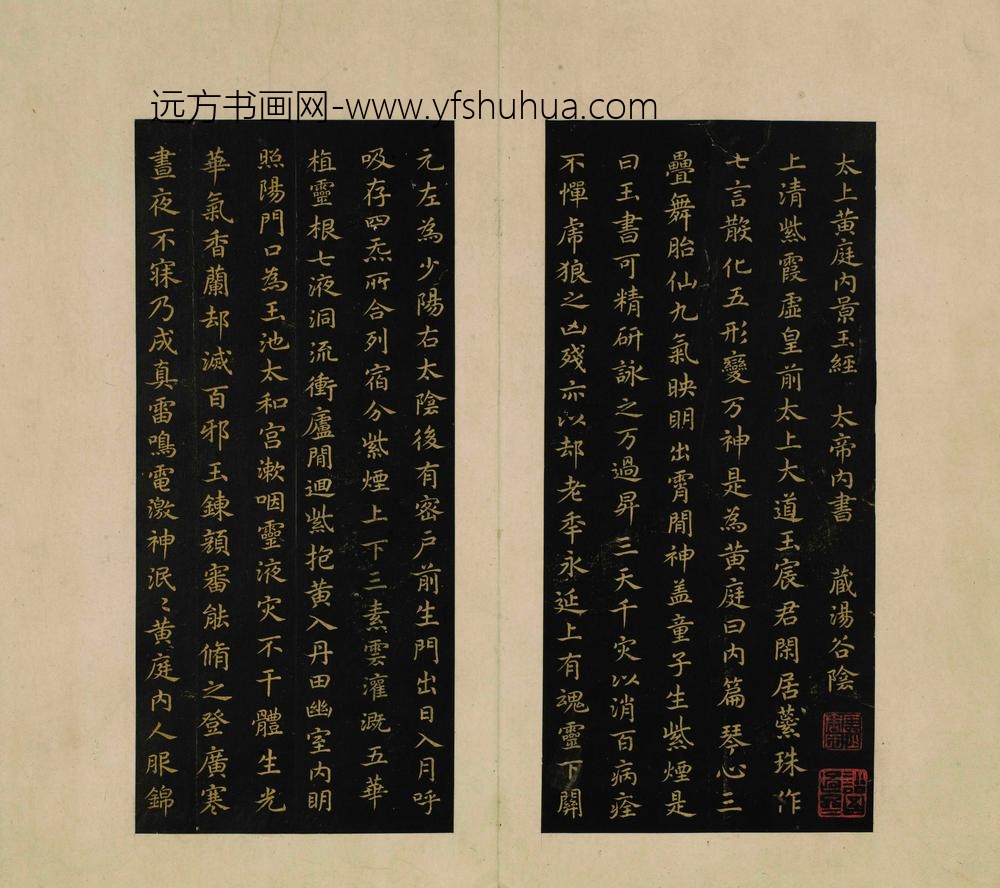 远方书画网-www.yfshuhua.com
太上黄庭內景玉經 太帝內書 藏湯谷陰
上清紫霞虛皇前太上大道玉宸君閑居蘂珠作
七言散化五形變万神是為黄庭曰內篇琴心三
疊舞胎仙九氣映明出霄間神盖童子生紫煙是
曰玉書可精研詠之万過昇三天千灾以消百病痊
不憚虎狼之凶殘亦以却老年永延上有魂靈下關
元左為少陽右太陰後有密戶前生門出日入月呼
吸存四炁所合列宿分紫煙上下三素雲灌溉五華
植靈根七液洞流衝廬間迴紫抱黄入丹田幽室內明
照陽門口為玉池太和宫漱咽靈液灾不干體生光
華氣香蘭却滅百邪玉鍊顔審能脩之登廣寒
晝夜不寐乃成真雷鳴電激神泯〻黄庭內人服錦